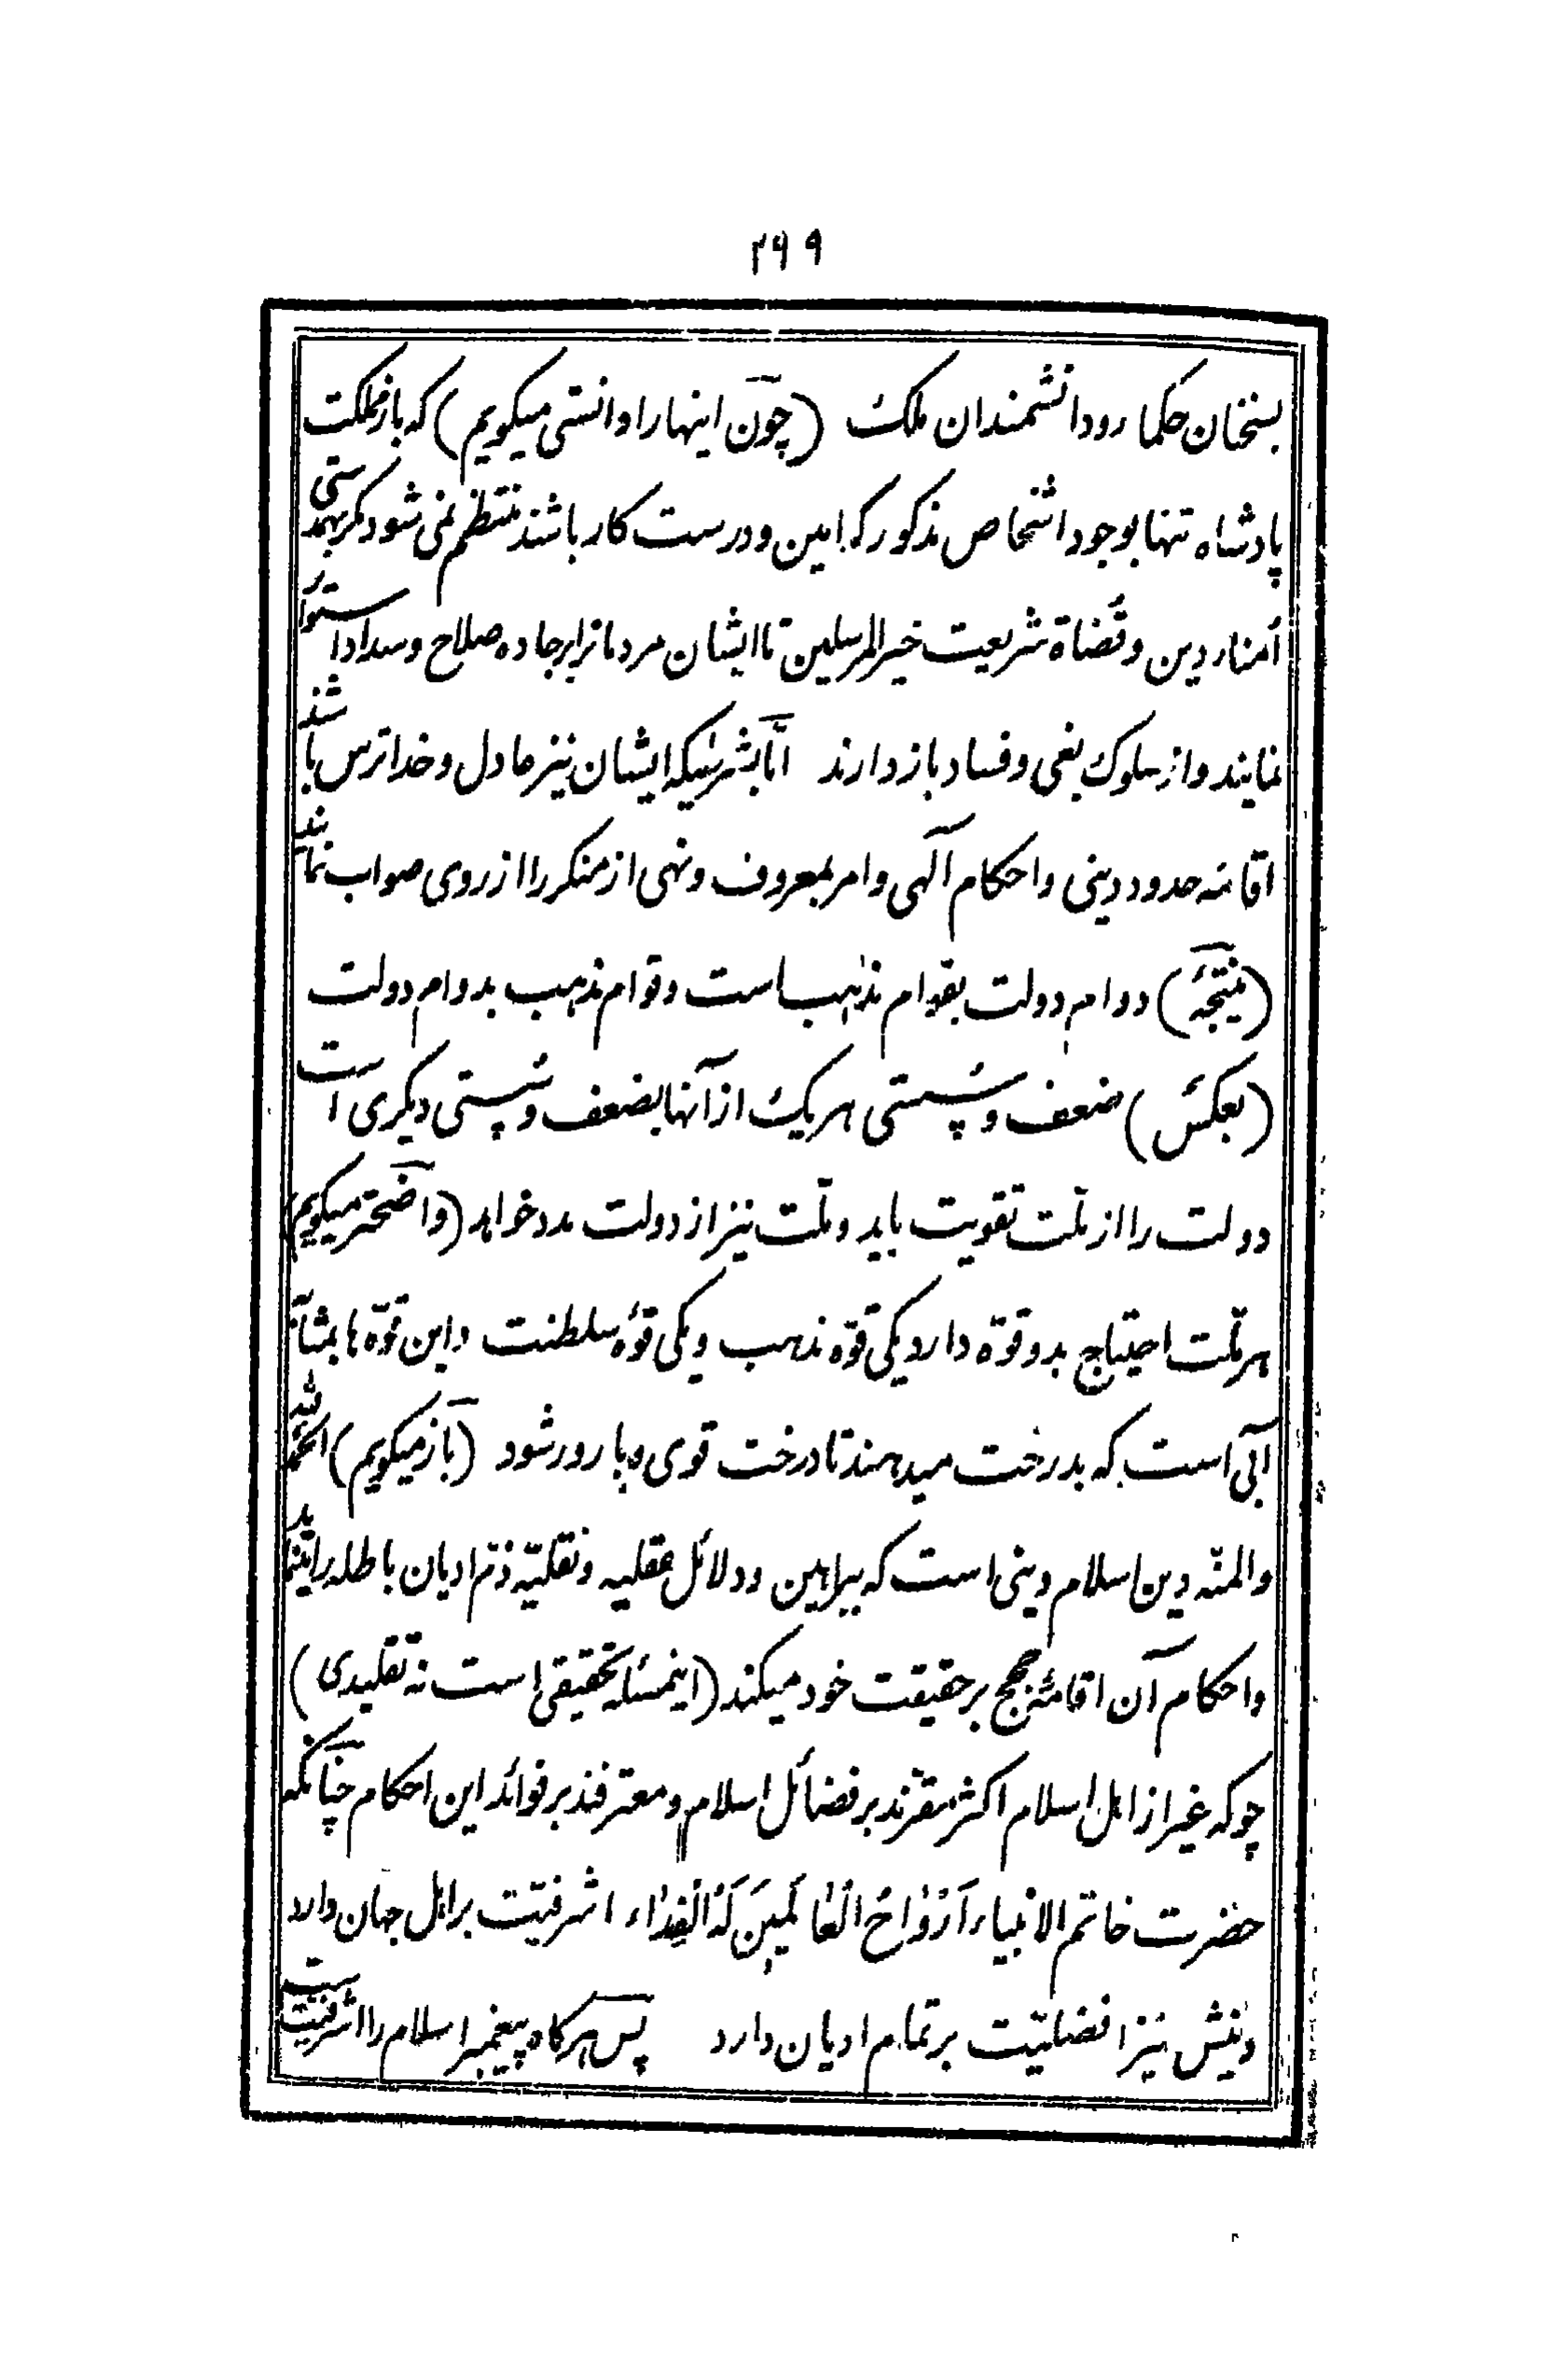 ۲۶۹
بسخنان حکماء ودانشمندان ملک (چون اینها را دانستی میکویم) که باز مملکت
پادشاه تنها بوجود اشخاص مذکور که امین و درست کار باشند منتظم نمی شود مکر بهمدستی
اُمناء دین و قُضاة شریعت خیرالمرسلین تا ایشان مردمانرا بر جاده صلاح وسداد استوار
نمایند و از سلوک بغی و فساد باز دارند امّا بشرطیکه ایشان نیز عادل و خدا ترس باشند
اقامه حدود دینی و احکام آلهی و امر بمعروف و نهی از منکر را از روی صواب نمایند
(نتیجهٔ) دوام دولت بقوام مذهب است و قوام مذهب بدوام دولت
(بعکس) ضعف و سُستی هر یک از آنها بضعف و سُستی دیکری است
دولت را از ملّت تقویت باید و ملّت نیز از دولت مدد خواهد (واضحتر میکویم)
هر ملّت احتیاج بدو قوّه دارد یکی قوّه مذهب و یکی قوّه سلطنت و این قوّه ها بمثابهٔ
آبی است که بدرخت میدهند تا درخت قوی و بارور شود (باز میکویم) الحمدلله
والمنّه دین اسلام دینی است که ببراهین و دلائل عقلیه و نقلیّه ذمّ ادیان باطله را مینماید
و احکام آن اقامهٔ حجج بر حقیقت خود میکند (اینمسئله تحقیقی است نه تقلیدی)
چو که غیر از اهل اسلام اکثر مقرّند بر فضائل اسلام و معترفند بر فوائد این احکام چنانکه
حضرت خاتم الانبیاء اَرْوٰاحُ الْعٰالَمینَ لَهُ الْفِدٰاء اشرفیّت بر اهل جهان دارد
دینش نیز افضلیّت بر تمام ادیان دارد پس هرکاه پیغمبر اسلام را اشرفیّت است